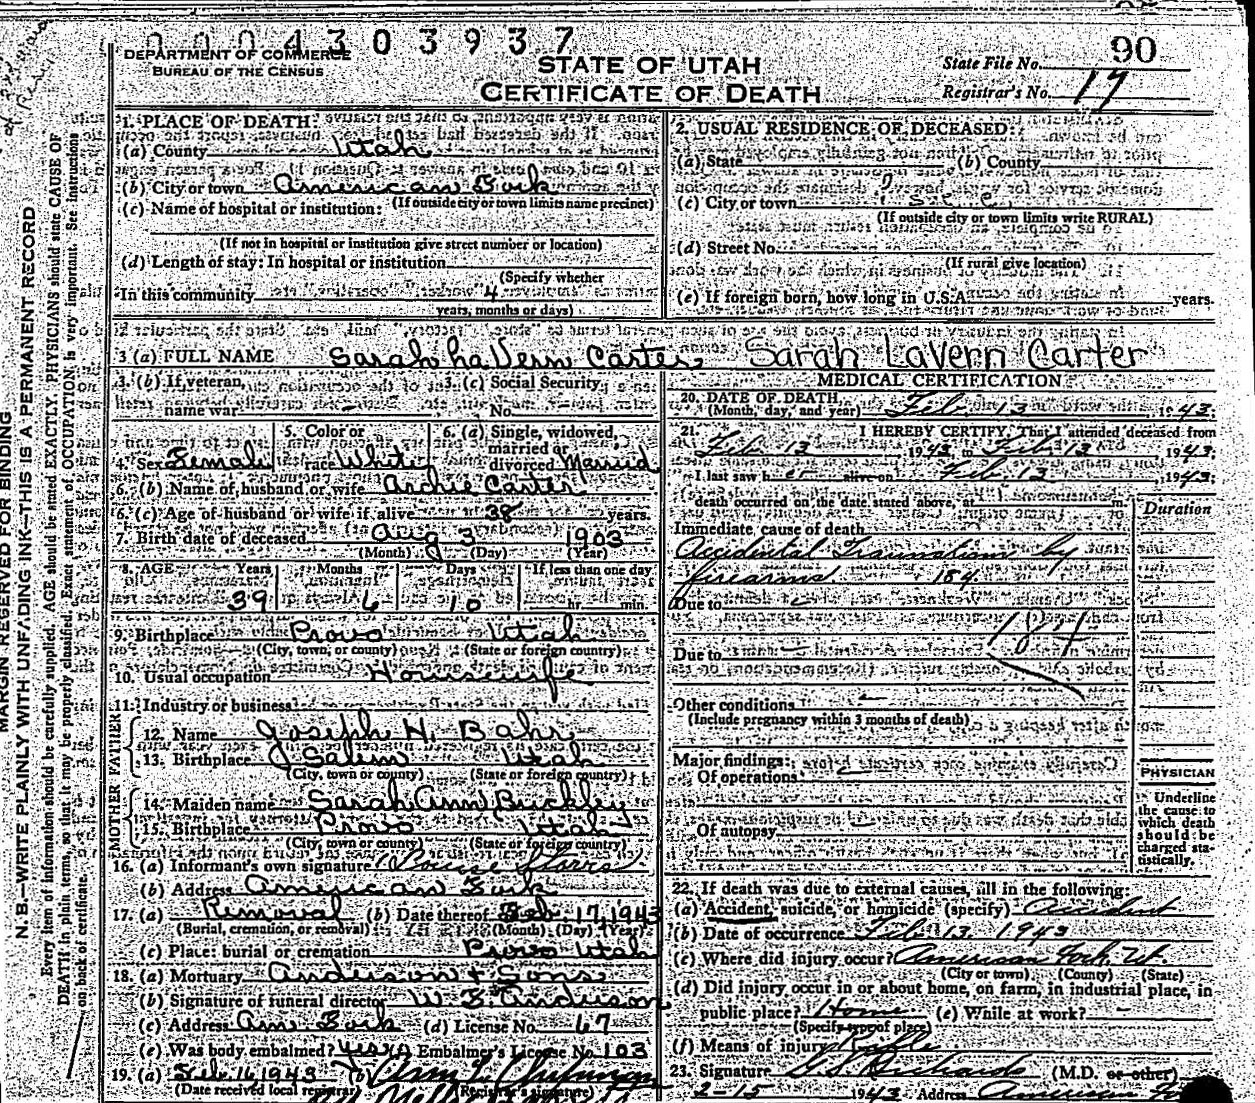 0004303937
90
DEPARTMENT OF COMMERCE
BUREAU OF THE CENSUS
STATE OF UTAH
CERTIFICATE OF DEATH
State File No.
Registrar's No. 17
MARGIN RESERVED FOR BINDING
N. B.—WRITE PLAINLY WITH UNFADING INK—THIS IS A PERMANENT RECORD
Every item of information should be carefully supplied. AGE should be stated EXACTLY. PHYSICIANS should state CAUSE OF
DEATH in plain terms, so that it may be properly classified. Exact statement of OCCUPATION is very important. See instructions
on back of certificate.
1. PLACE OF DEATH:
(a) County Utah
(b) City or town American Fork
(If outside city or town limits name precinct)
(c) Name of hospital or institution:
(If not in hospital or institution give street number or location)
(d) Length of stay: In hospital or institution
(Specify whether
In this community 4
years, months or days)
2. USUAL RESIDENCE OF DECEASED:
(a) State (b) County
(c) City or town
(If outside city or town limits write RURAL)
(d) Street No.
(If rural give location)
(e) If foreign born, how long in U.S.A. years.
3 (a) FULL NAME Sarah LaVern Carter Sarah LaVern Carter
3. (b) If veteran, 3. (c) Social Security
name war — No.
4. Sex Female 5. Color or race White 6. (a) Single, widowed, married or divorced Married
6. (b) Name of husband or wife Archie Carter
6. (c) Age of husband or wife if alive 38 years.
7. Birth date of deceased Aug 3 1903
(Month) (Day) (Year)
8. AGE Years Months Days If less than one day
39 6 10 hr. min.
9. Birthplace Provo Utah
(City, town, or county) (State or foreign country)
10. Usual occupation Housewife
11. Industry or business
FATHER
12. Name Joseph H. Bahr
13. Birthplace Salem Utah
(City, town or county) (State or foreign country)
MOTHER
14. Maiden name Sarah Ann Buckley
15. Birthplace Provo Utah
(City, town or county) (State or foreign country)
16. (a) Informant's own signature
(b) Address American Fork
17. (a) Removal (b) Date thereof Feb. 17, 1943
(Burial, cremation, or removal) (Month) (Day) (Year)
(c) Place: burial or cremation Provo Utah
18. (a) Mortuary Anderson & Sons
(b) Signature of funeral director W. E. Anderson
(c) Address Am. Fork (d) License No. 67
(e) Was body embalmed? yes Embalmer's License No. 103
19. (a) Feb 16 1943 (b)
(Date received local registrar) (Registrar's signature)
MEDICAL CERTIFICATION
20. DATE OF DEATH
(Month, day, and year) Feb. 13 1943.
21. I HEREBY CERTIFY, That I attended deceased from
Feb. 13 1943 to Feb 13 1943.
I last saw her alive on Feb. 13, 1943.
death occurred on the date stated above, at m.
Duration
Immediate cause of death
Accidental Traumatism by
firearms 184
Due to —
184
Due to —
Other conditions —
(Include pregnancy within 3 months of death)
Major findings:
Of operations —
Of autopsy —
PHYSICIAN
Underline
the cause to
which death
should be
charged sta-
tistically.
22. If death was due to external causes, fill in the following:
(a) Accident, suicide, or homicide (specify) Accident
(b) Date of occurrence Feb. 13. 1943
(c) Where did injury occur? American Fork, Ut.
(City or town) (County) (State)
(d) Did injury occur in or about home, on farm, in industrial place, in
public place? Home (e) While at work? —
(Specify type of place)
(f) Means of injury Rifle
23. Signature Richards (M.D. or other)
2-15 1943 Address American